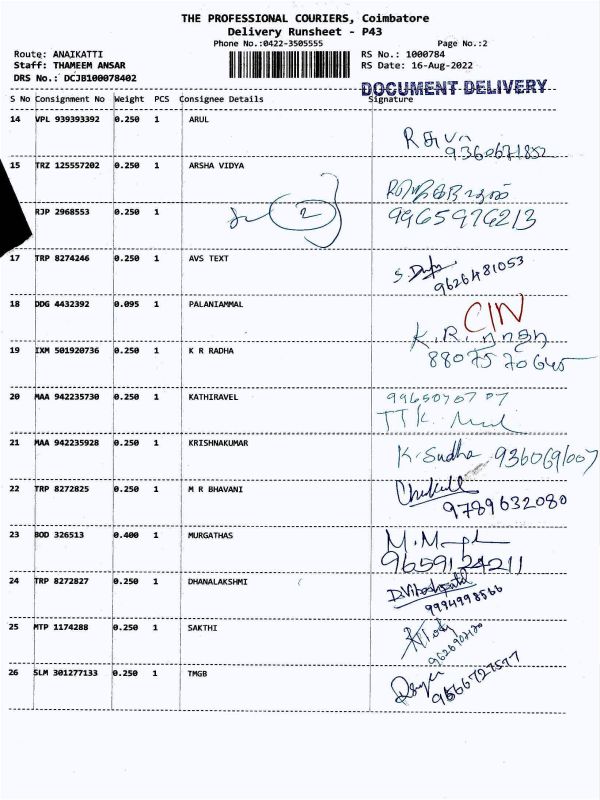 THE PROFESSIONAL COURIERS, Coimbatore
Delivery Runsheet - P43
Phone No.:0422-3505555 Page No.:2
Route: ANAIKATTI RS No.: 1000784
Staff: THAMEEM ANSAR RS Date: 16-Aug-2022
DRS No.: DCJB100078402
DOCUMENT DELIVERY
S No Consignment No Weight PCS Consignee Details Signature
14 VPL 939393392 0.250 1 ARUL
9360671852
15 TRZ 125557202 0.250 1 ARSHA VIDYA
RJP 2968553 0.250 1 2 9965976213
17 TRP 8274246 0.250 1 AVS TEXT
9626481053
18 DDG 4432392 0.095 1 PALANIAMMAL
19 IXM 501920736 0.250 1 K R RADHA
20 MAA 942235730 0.250 1 KATHIRAVEL
21 MAA 942235928 0.250 1 KRISHNAKUMAR
K. Sudha
22 TRP 8272825 0.250 1 M R BHAVANI
9789632080
23 BOD 326513 0.400 1 MURGATHAS
9659124211
24 TRP 8272827 0.250 1 DHANALAKSHMI
9994998566
25 MTP 1174288 0.250 1 SAKTHI
26 SLM 301277133 0.250 1 TMGB
9566727577